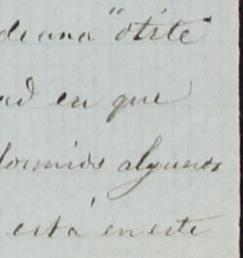 de una "otite
ad en que
dormido algunos
está en este